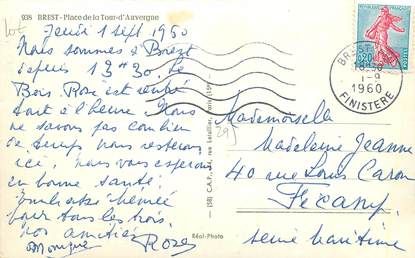 938 BREST - Place de la Tour-d'Auvergne
Jeudi 1 Sept 1960
Nous sommes à Brest
depuis 13H30. Le
Bois Rosé est rentré
tout à l'heure. Nous
ne savons pas combien
de temps nous resterons
ici, nous vous espérons
en bonne santé.
pour tous les trois.
nos amitiés
Monique Roses
Réal-Photo
REPUBLIQUE FRANCAISE
0,20
BREST
18H30
1-9
1960
FINISTERE
Mademoiselle
Madeleine Jeanne
40 rue Louis Caron
Fécamp.
Seine Maritime